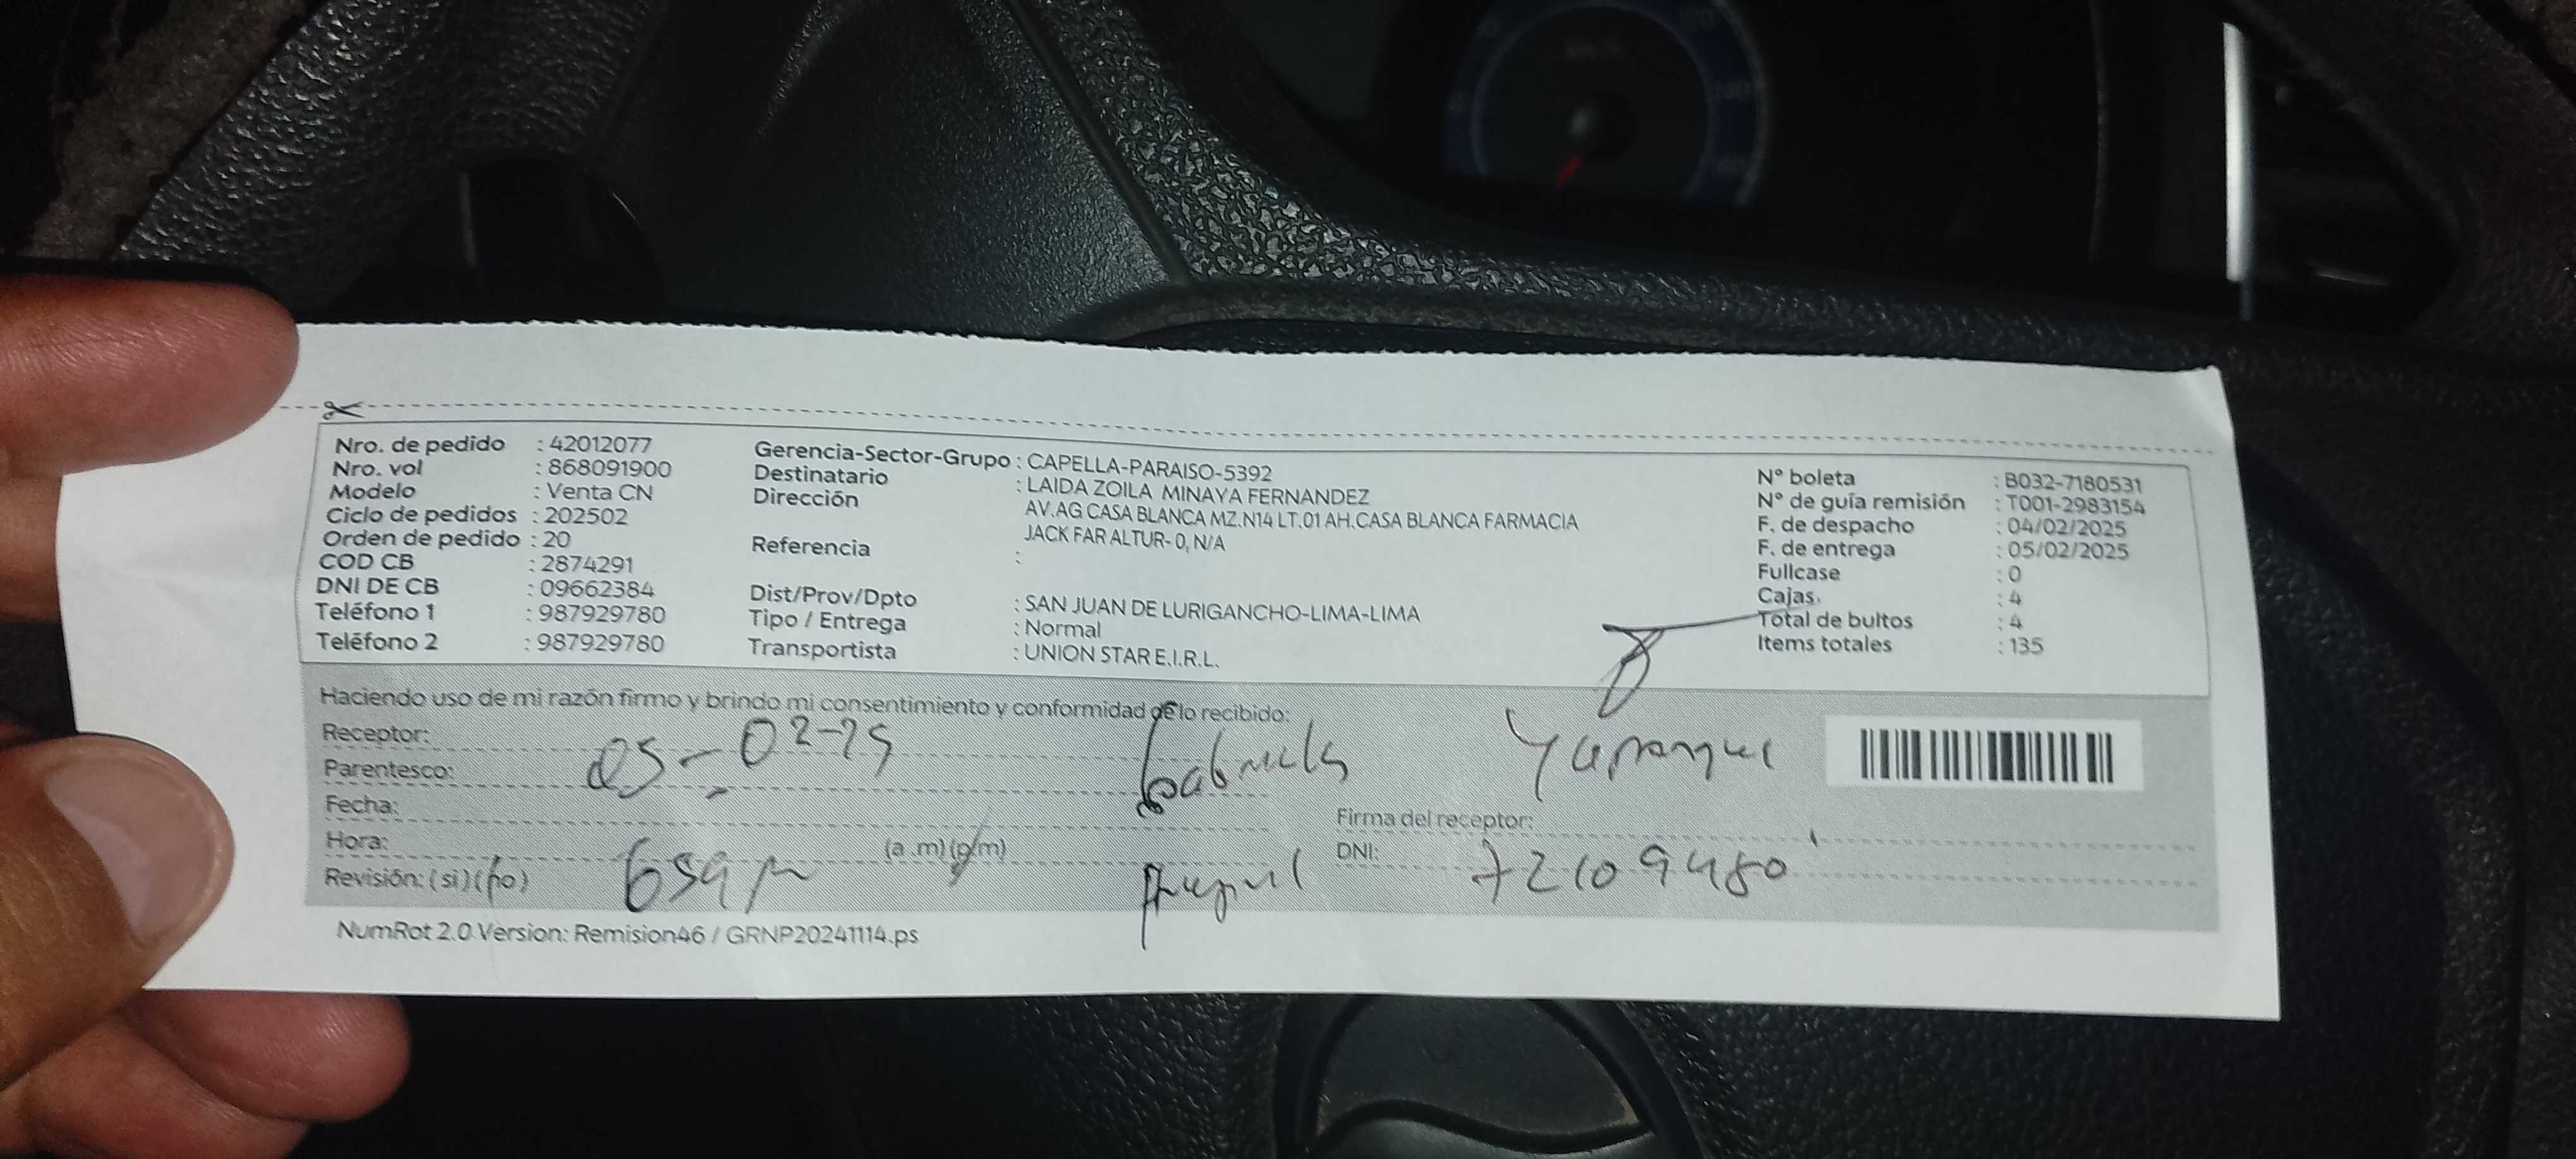 Nro. de pedido : 42012077
Nro. vol : 868091900
Modelo : Venta CN
Ciclo de pedidos : 202502
Orden de pedido : 20
COD CB : 2874291
DNI DE CB : 09662384
Teléfono 1 : 987929780
Teléfono 2 : 987929780
Gerencia-Sector-Grupo : CAPELLA-PARAISO-5392
Destinatario : LAIDA ZOILA MINAYA FERNANDEZ
Dirección AV.AG CASA BLANCA MZ.N14 LT.01 AH.CASA BLANCA FARMACIA
JACK FAR ALTUR- 0, N/A
Referencia :
Dist/Prov/Dpto : SAN JUAN DE LURIGANCHO-LIMA-LIMA
Tipo / Entrega : Normal
Transportista : UNION STAR E.I.R.L.
N° boleta : B032-7180531
N° de guía remisión : T001-2983154
F. de despacho : 04/02/2025
F. de entrega : 05/02/2025
Fullcase : 0
Cajas : 4
Total de bultos : 4
Items totales : 135
Haciendo uso de mi razón firmo y brindo mi consentimiento y conformidad de lo recibido:
Receptor:
Parentesco: 05-02-25
Fecha:
Hora: 659 p (a .m) (p/m)
Revisión: (si) (no)
Yupanqui
Firma del receptor:
DNI: 72109480
NumRot 2.0 Version: Remision46 / GRNP20241114.ps